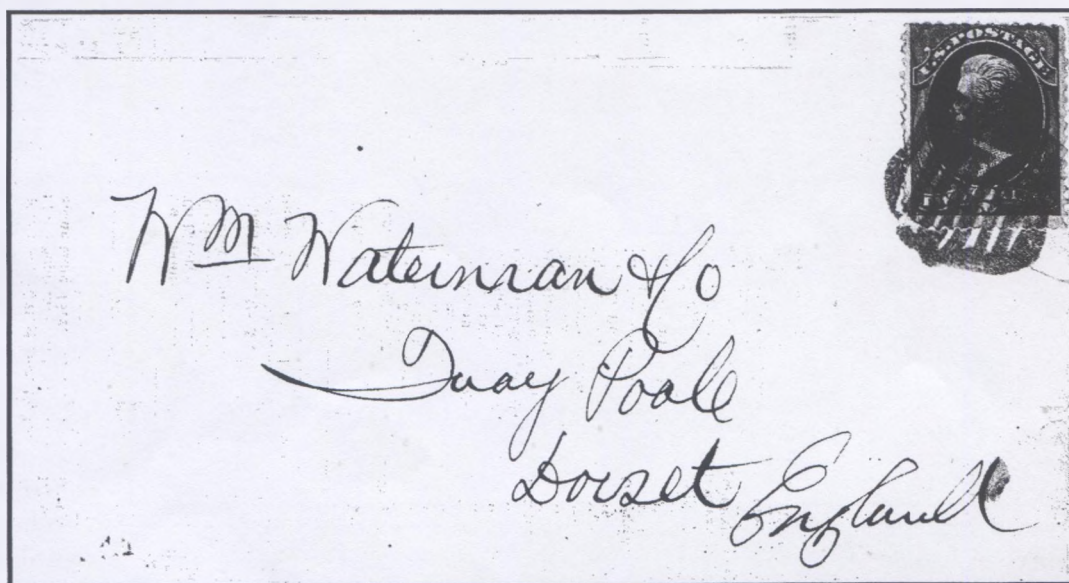 U.S. POSTAGE
Wm Waterman & Co
Quay Poole
Dorset England